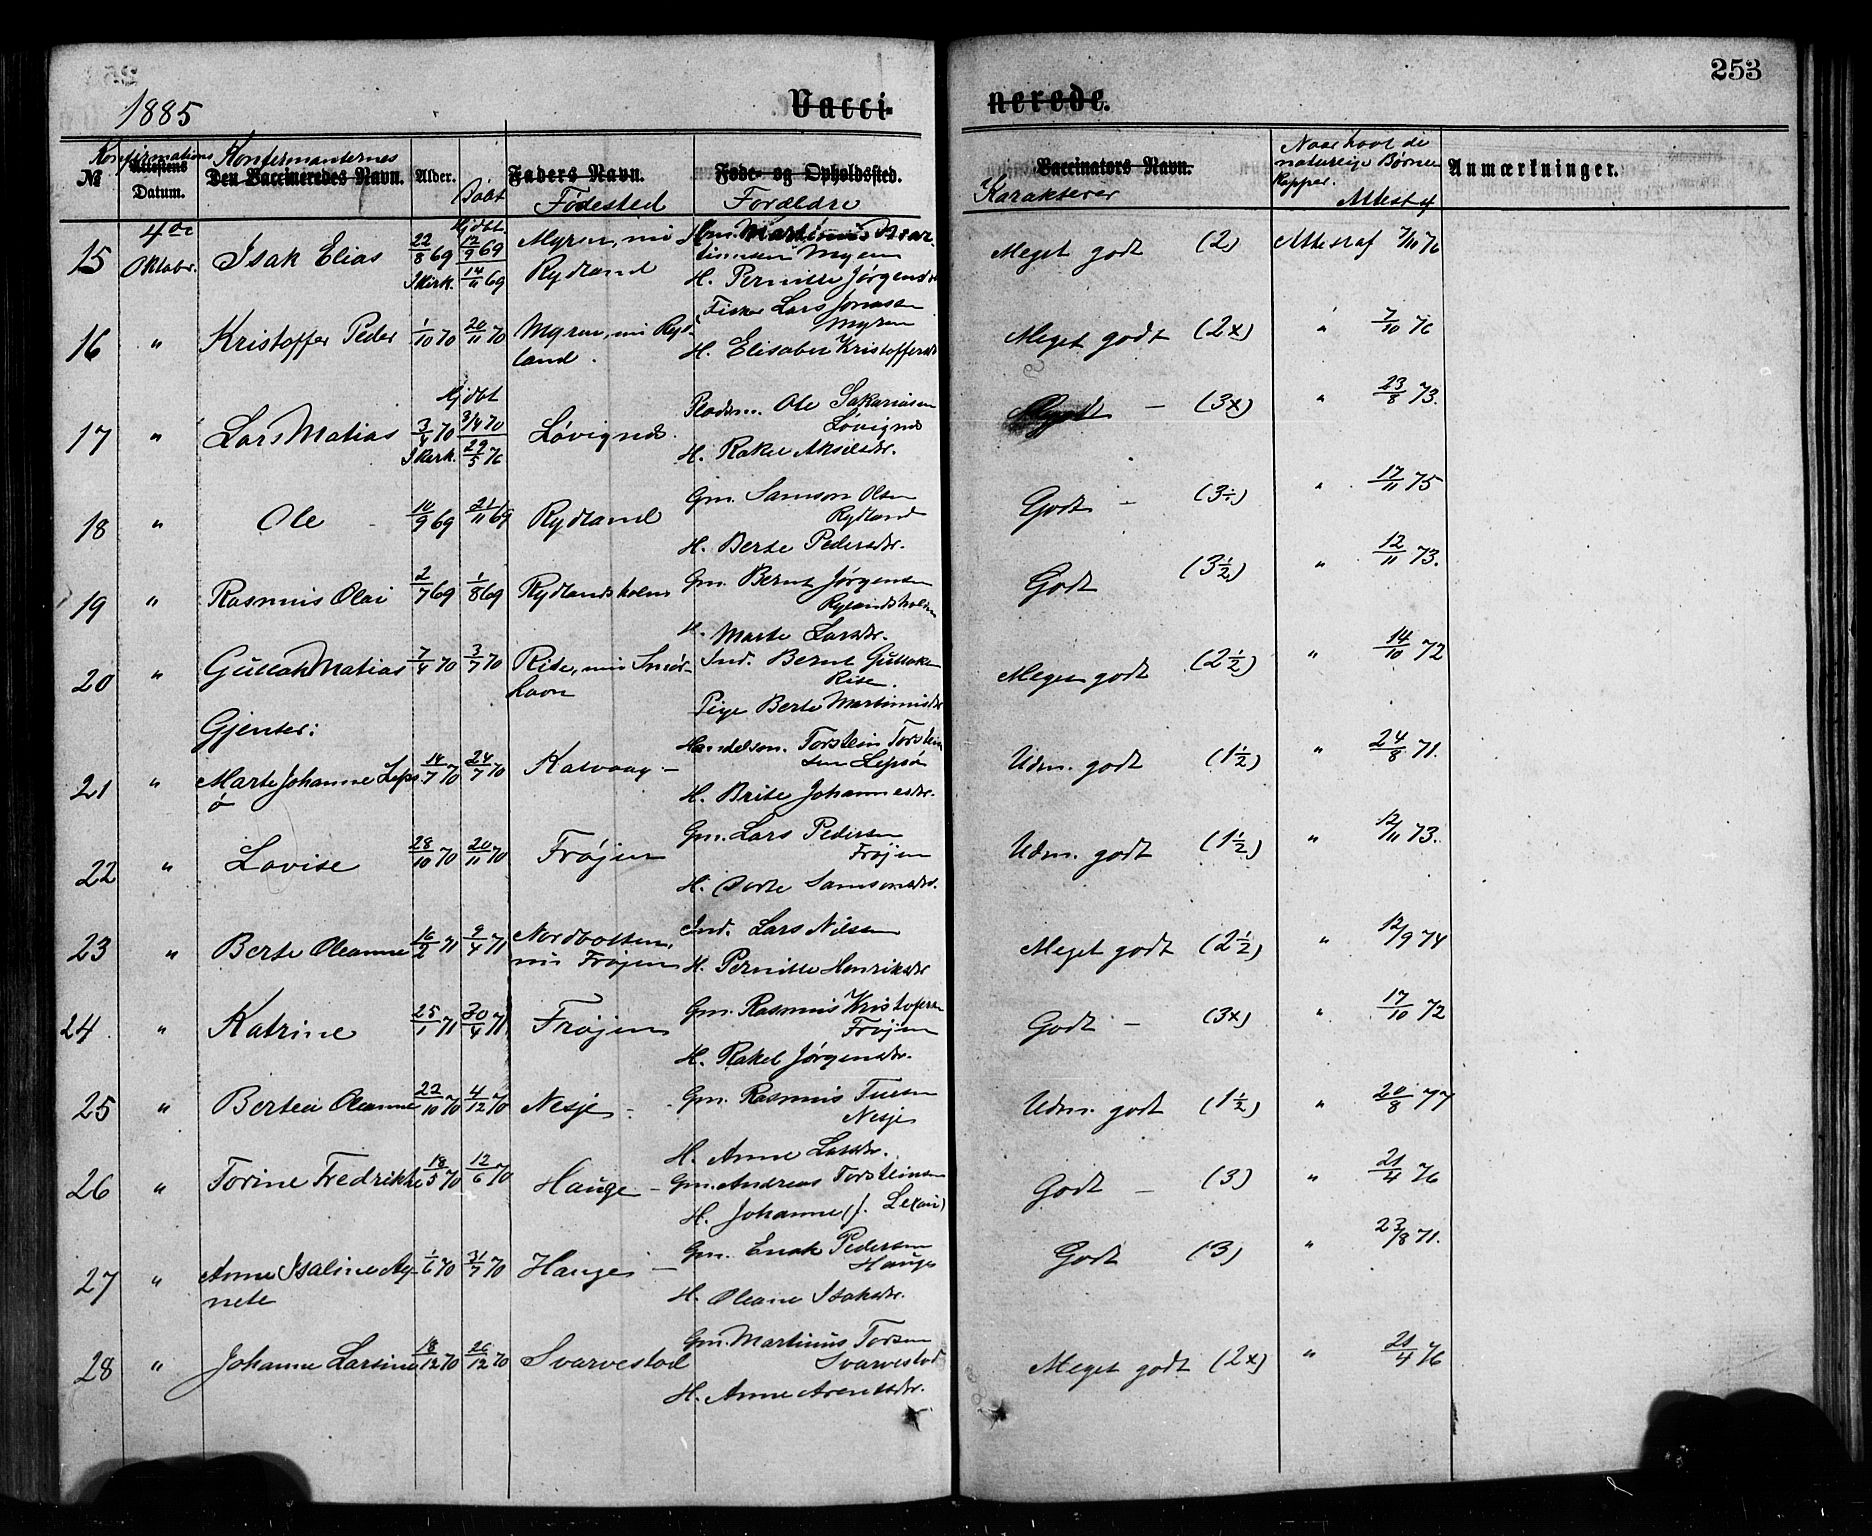 253
1885
Vacci-
nerede.
Konfirmations
Konfirmanternes
№
Attestens Datum.
Den Vaccineredes Navn.
Alder.
Døbt
Faders Navn.
Fødested
Føde- og Opholdssted.
Forældre
Vaccinators Navn.
Karakterer
Naar havt de
naturlige Børne
kopper.
Attest af
Anmærkninger.
15 4de Oktobr. Isak Elias 22/8 69 Hjdbt. 12/9 69 Myren, mi Gm. Martinus Mar
I Kirk. 14/11 69 Rydland tinusen Myren
H. Pernille Jørgensdr
Meget godt (2) Attest af 7/10 76
16 " Kristoffer Peder 1/10 70 20/11 70 Myren, mi Ryd- Fisker Lars Jonassen
land. Myren
H. Elisabet Kristoffersdr
Meget godt (2x) " 7/10 76
17 " Lars Matias 3/4 70 Hjdbt 3/4 70 Løvignes Pladsm. Ole Sakariasen
I Kirk. 29/5 70 Løvignes
H. Rakel Akselsdr.
(3x) " 23/8 73.
18 " Ole 10/9 69 21/11 69 Rydland Gm. Samson Olsen
Rydland
H. Berte Pedersdr.
Godt - (3÷) " 17/11 75
19 " Rasmus Olai 2/7 69 1/8 69 Rydlandsholm Gm. Bernt Jørgensen
Rylandsholm
H. Marte Larsdr.
Godt (3½) " 12/11 73.
20 " Gullak Matias 7/4 70 3/7 70 Rise, mi Smør- Ind. Bernt Gullaksen
havn Rise.
Pige Berte Martinusdr
Meget godt (2½) " 14/10 72
Gjenter:
21 " Marte Johanne Leps 14/7 70 24/7 70 Kalvaag - Handelsm. Torstein Torstein
ø sen Lepsø
H. Brite Johannesdr.
Udm. godt (1½) " 24/8 71.
22 " Lovise 28/10 70 20/11 70 Frøjen Gm. Lars Pedersen
Frøjen
H. Dorte Samsonsdr.
Udm. godt (1½) " 12/11 73.
23 " Berte Oleanne 16/2 71 9/4 71 Nordbotten, Ind. Lars Nilsen
mi Frøjen H. Pernille Henriksdr
Meget godt (2½) " 12/9 74
24 " Katrine 25/1 71 30/4 71 Frøjen Gm. Rasmus Kristofersen
Frøjen
H. Rakel Jørgensdr.
Godt - (3x) " 17/10 72
25 " Oleanne 22/10 70 4/12 70 Nesje - Gm. Rasmus
Nesje
H. Anne Larsdr.
Udm. godt (1½) " 20/8 77
26 " Torine Fredrikke 18/5 70 12/6 70 Hauge - Gm. Andreas Torsteinsen
H. Johanne (f. Lexau)
Godt - (3) " 21/4 76
27 " Anne Isaline Ag- 1/6 70 31/7 70 Hauge - Gm. Enok Pedersen
nete Hauge
H. Oleane Isaksdr.
Godt (3) " 23/8 71.
28 " Johanne Larsine 18/12 70 26/12 70 Svarvestad Gm. Martinus Torsen
Svarvestad
H. Anne Arentsdr.
Meget godt (2x) " 21/4 76